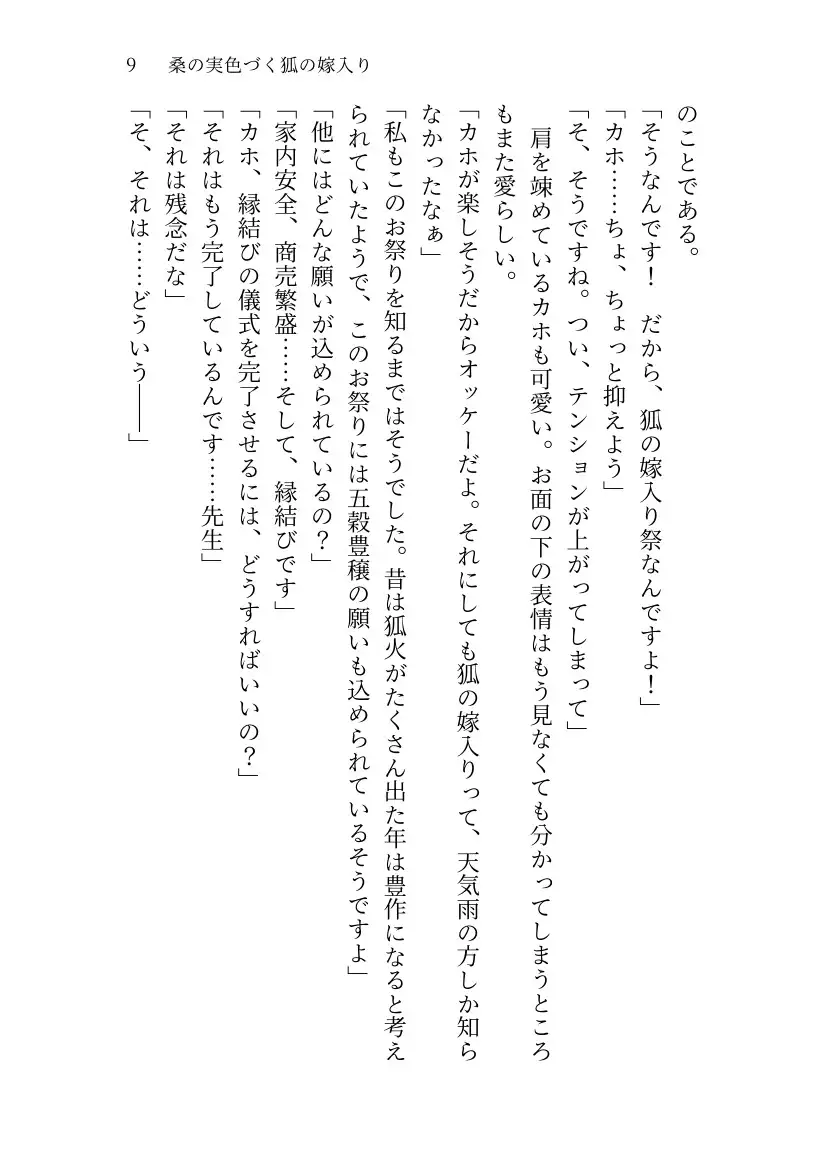 9 桑の実色づく狐の嫁入り
のことである。
「そうなんです！　だから、狐の嫁入り祭なんですよ！」
「カホ……ちょ、ちょっと抑えよう」
「そ、そうですね。つい、テンションが上がってしまって」
　肩を竦めているカホも可愛い。お面の下の表情はもう見なくても分かってしまうところ
もまた愛らしい。
「カホが楽しそうだからオッケーだよ。それにしても狐の嫁入りって、天気雨の方しか知ら
なかったなぁ」
「私もこのお祭りを知るまではそうでした。昔は狐火がたくさん出た年は豊作になると考え
られていたようで、このお祭りには五穀豊穣の願いも込められているそうですよ」
「他にはどんな願いが込められているの？」
「家内安全、商売繁盛……そして、縁結びです」
「カホ、縁結びの儀式を完了させるには、どうすればいいの？」
「それはもう完了しているんです……先生」
「それは残念だな」
「そ、それは……どういう――」